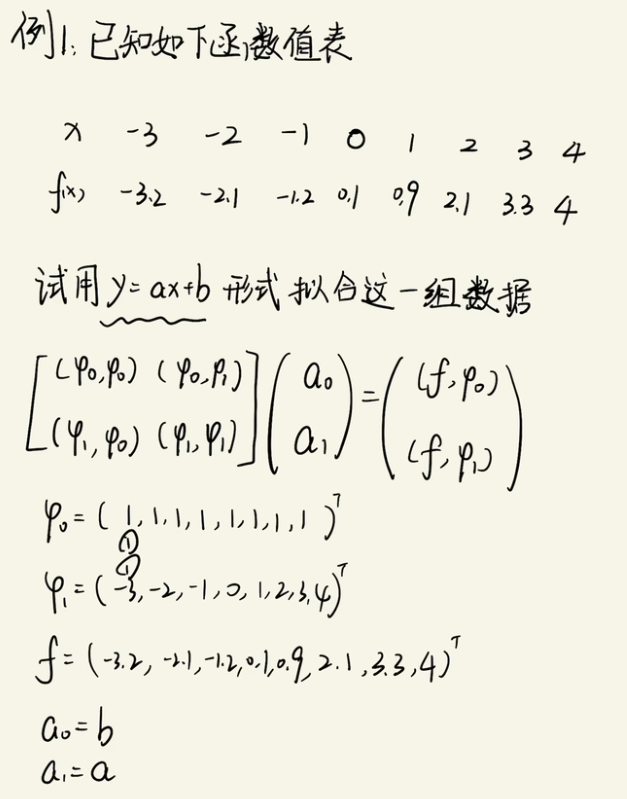 例1: 已知如下函数值表
x -3 -2 -1 0 1 2 3 4
f(x) -3.2 -2.1 -1.2 0.1 0.9 2.1 3.3 4
试用 y=ax+b 形式拟合这一组数据
[(φ₀,φ₀) (φ₀,φ₁)] (a₀) = ((f,φ₀))
[(φ₁,φ₀) (φ₁,φ₁)] (a₁) ((f,φ₁))
φ₀=( 1,1,1,1,1,1,1,1 )ᵀ
①
①
φ₁=(-3,-2,-1,0,1,2,3,4)ᵀ
f=(-3.2, -2.1,-1.2,0.1,0.9,2.1,3.3,4)ᵀ
a₀=b
a₁=a